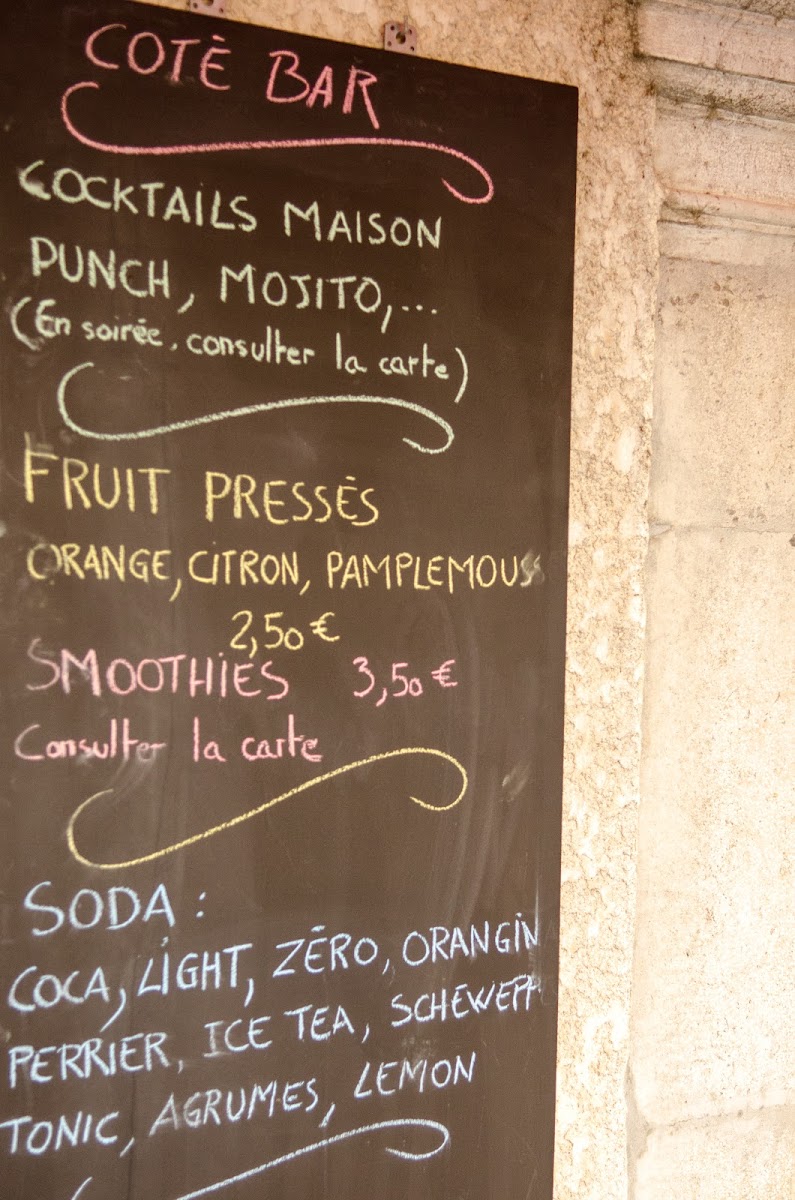 COTÉ BAR
COCKTAILS MAISON
PUNCH, MOJITO,...
(En soirée, consulter la carte)
FRUIT PRESSÉS
ORANGE, CITRON, PAMPLEMOUSS
2,50 €
SMOOTHIES 3,50 €
Consulter la carte
SODA :
COCA, LIGHT, ZÉRO, ORANGIN
PERRIER, ICE TEA, SCHEWEPP
TONIC, AGRUMES, LEMON